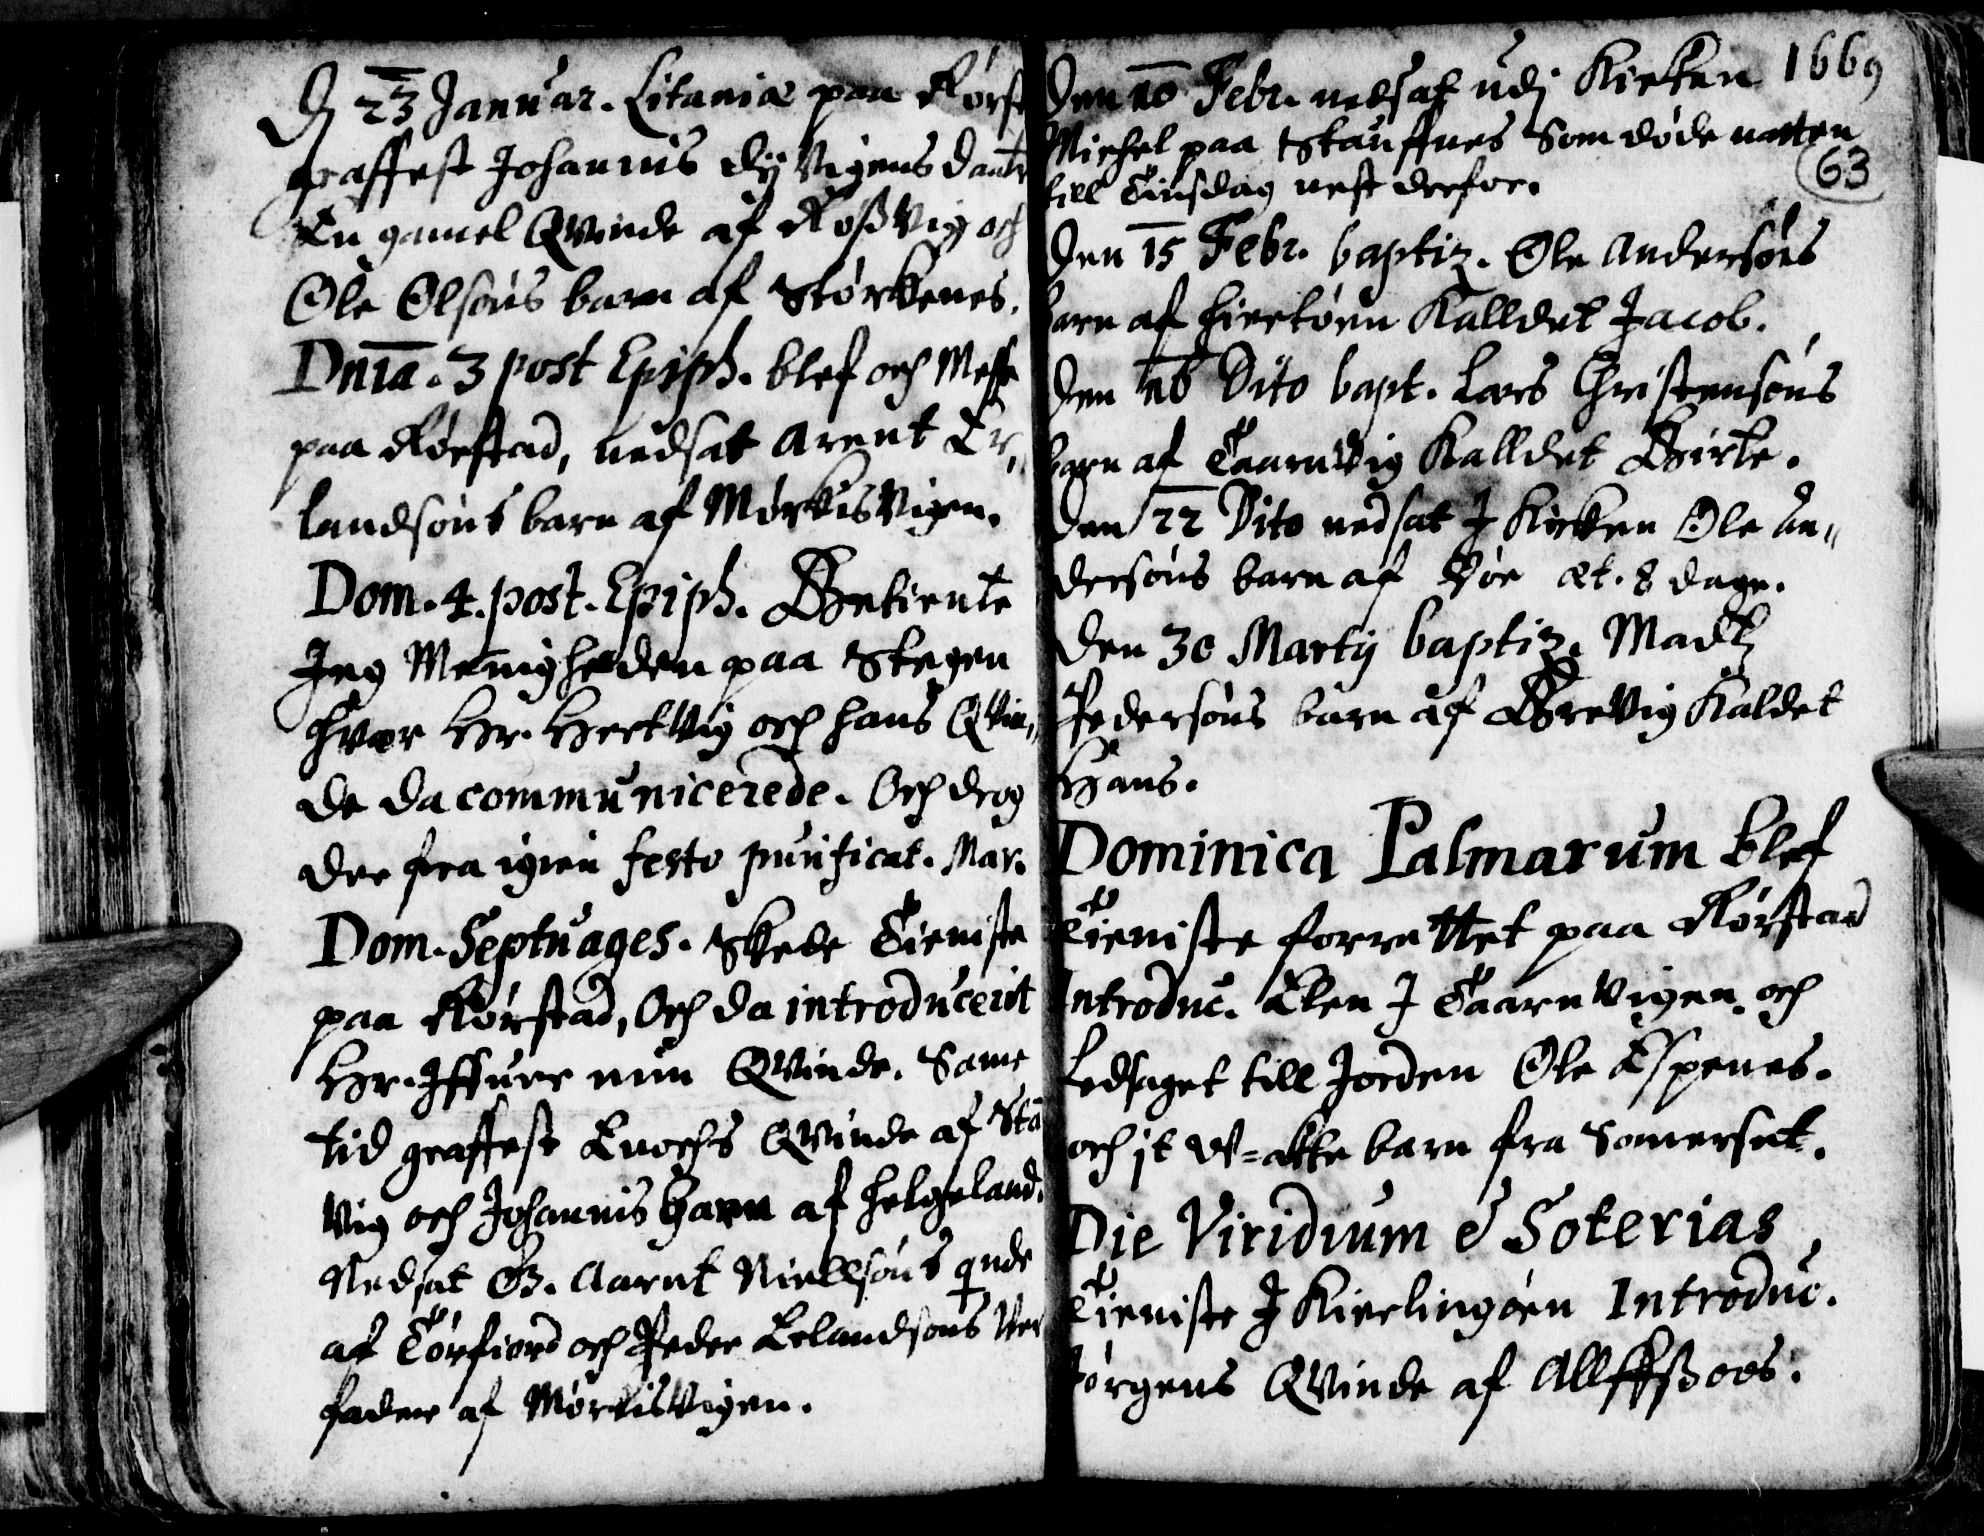 D 23 Januar. Litaniæ paa Rørst
graffest Johannis Dyvigens daat
En gamel Qvinde af Rossvig och
Ole Olsøns barn af Størkenes.
Dnica. 3 post Epiph. blef och Messe
paa Rørstad, nedsat Arent Er,,
landsøns barn af Mørkisvigen.
Dom. 4. post. Epiph. Betiente
Jeg Menigheden paa Stegen
hvor Hr. Hertvig och hans Qvin,,
de da communicerede. Och drog
der fra igien festo purificat. Mar.
Dom. Septuages. Skede Tieniste
paa Rørstad, Och da introducerit
Hr. Iffuer min Qvinde. Same
tid graffest Enochs Qvinde af Sta
vig och Johannis barn af Helgeland.
Nedsat B. Aarnt Niellsøns qnde
af Tørfiord och Peder Erlandsøns Ver
fader af Mørkisvigen.
Den 10 Febr. nedsat udj Kirken 1669
Michel paa Stauffnes Som døde natten
63
till Tiisdag nest derfor.
Den 15 Febr. baptiz. Ole Andersøns
barn af Hiertøen Kalldet Jacob.
Den 16 Dito bapt. Lars Christensøns
barn af Taarnvig Kalldet Birte.
Den 22 Dito nedsat J Kirken Ole An,,
dersøns barn af æt. 8 dage.
Den 30 Martij baptiz. Madtz
Pedersøns barn af Brevig Kaldet
Hans.
Dominica Palmarum blef
Tieniste forrettet paa Rørstad
Introduc. Elen J Taarnvigen. och
Ledsaget till Jorden Ole Espenes.
och it V=ækte barn fra Somerset.
Die Viridium & Soterias
Tieniste J Kierlingøen Introduc.
Jørgens Qvinde af Allffssoos.